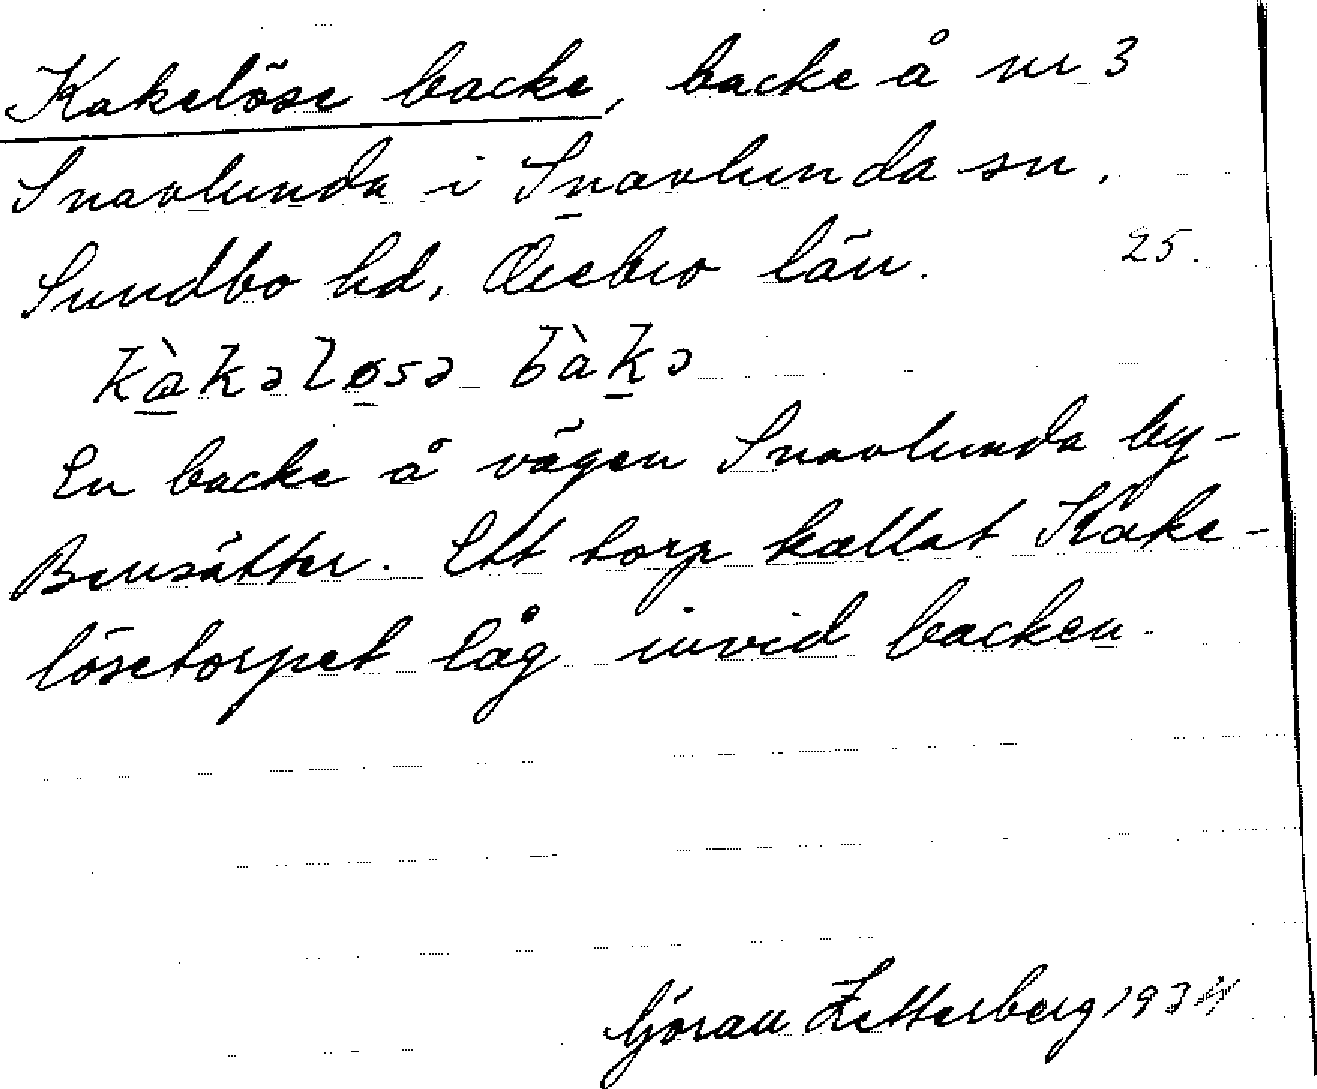 Kakelöse backe, backe å nr 3
Snavlunda i Snavlunda sn,
Sundbo hd, Örebro län. 25.
kàkəløsə bàkə
En backe å vägen Snavlunda by-
Bensätter. Ett torp kallat Kake-
lösetorpet låg invid backen.
Göran Zetterberg 1934